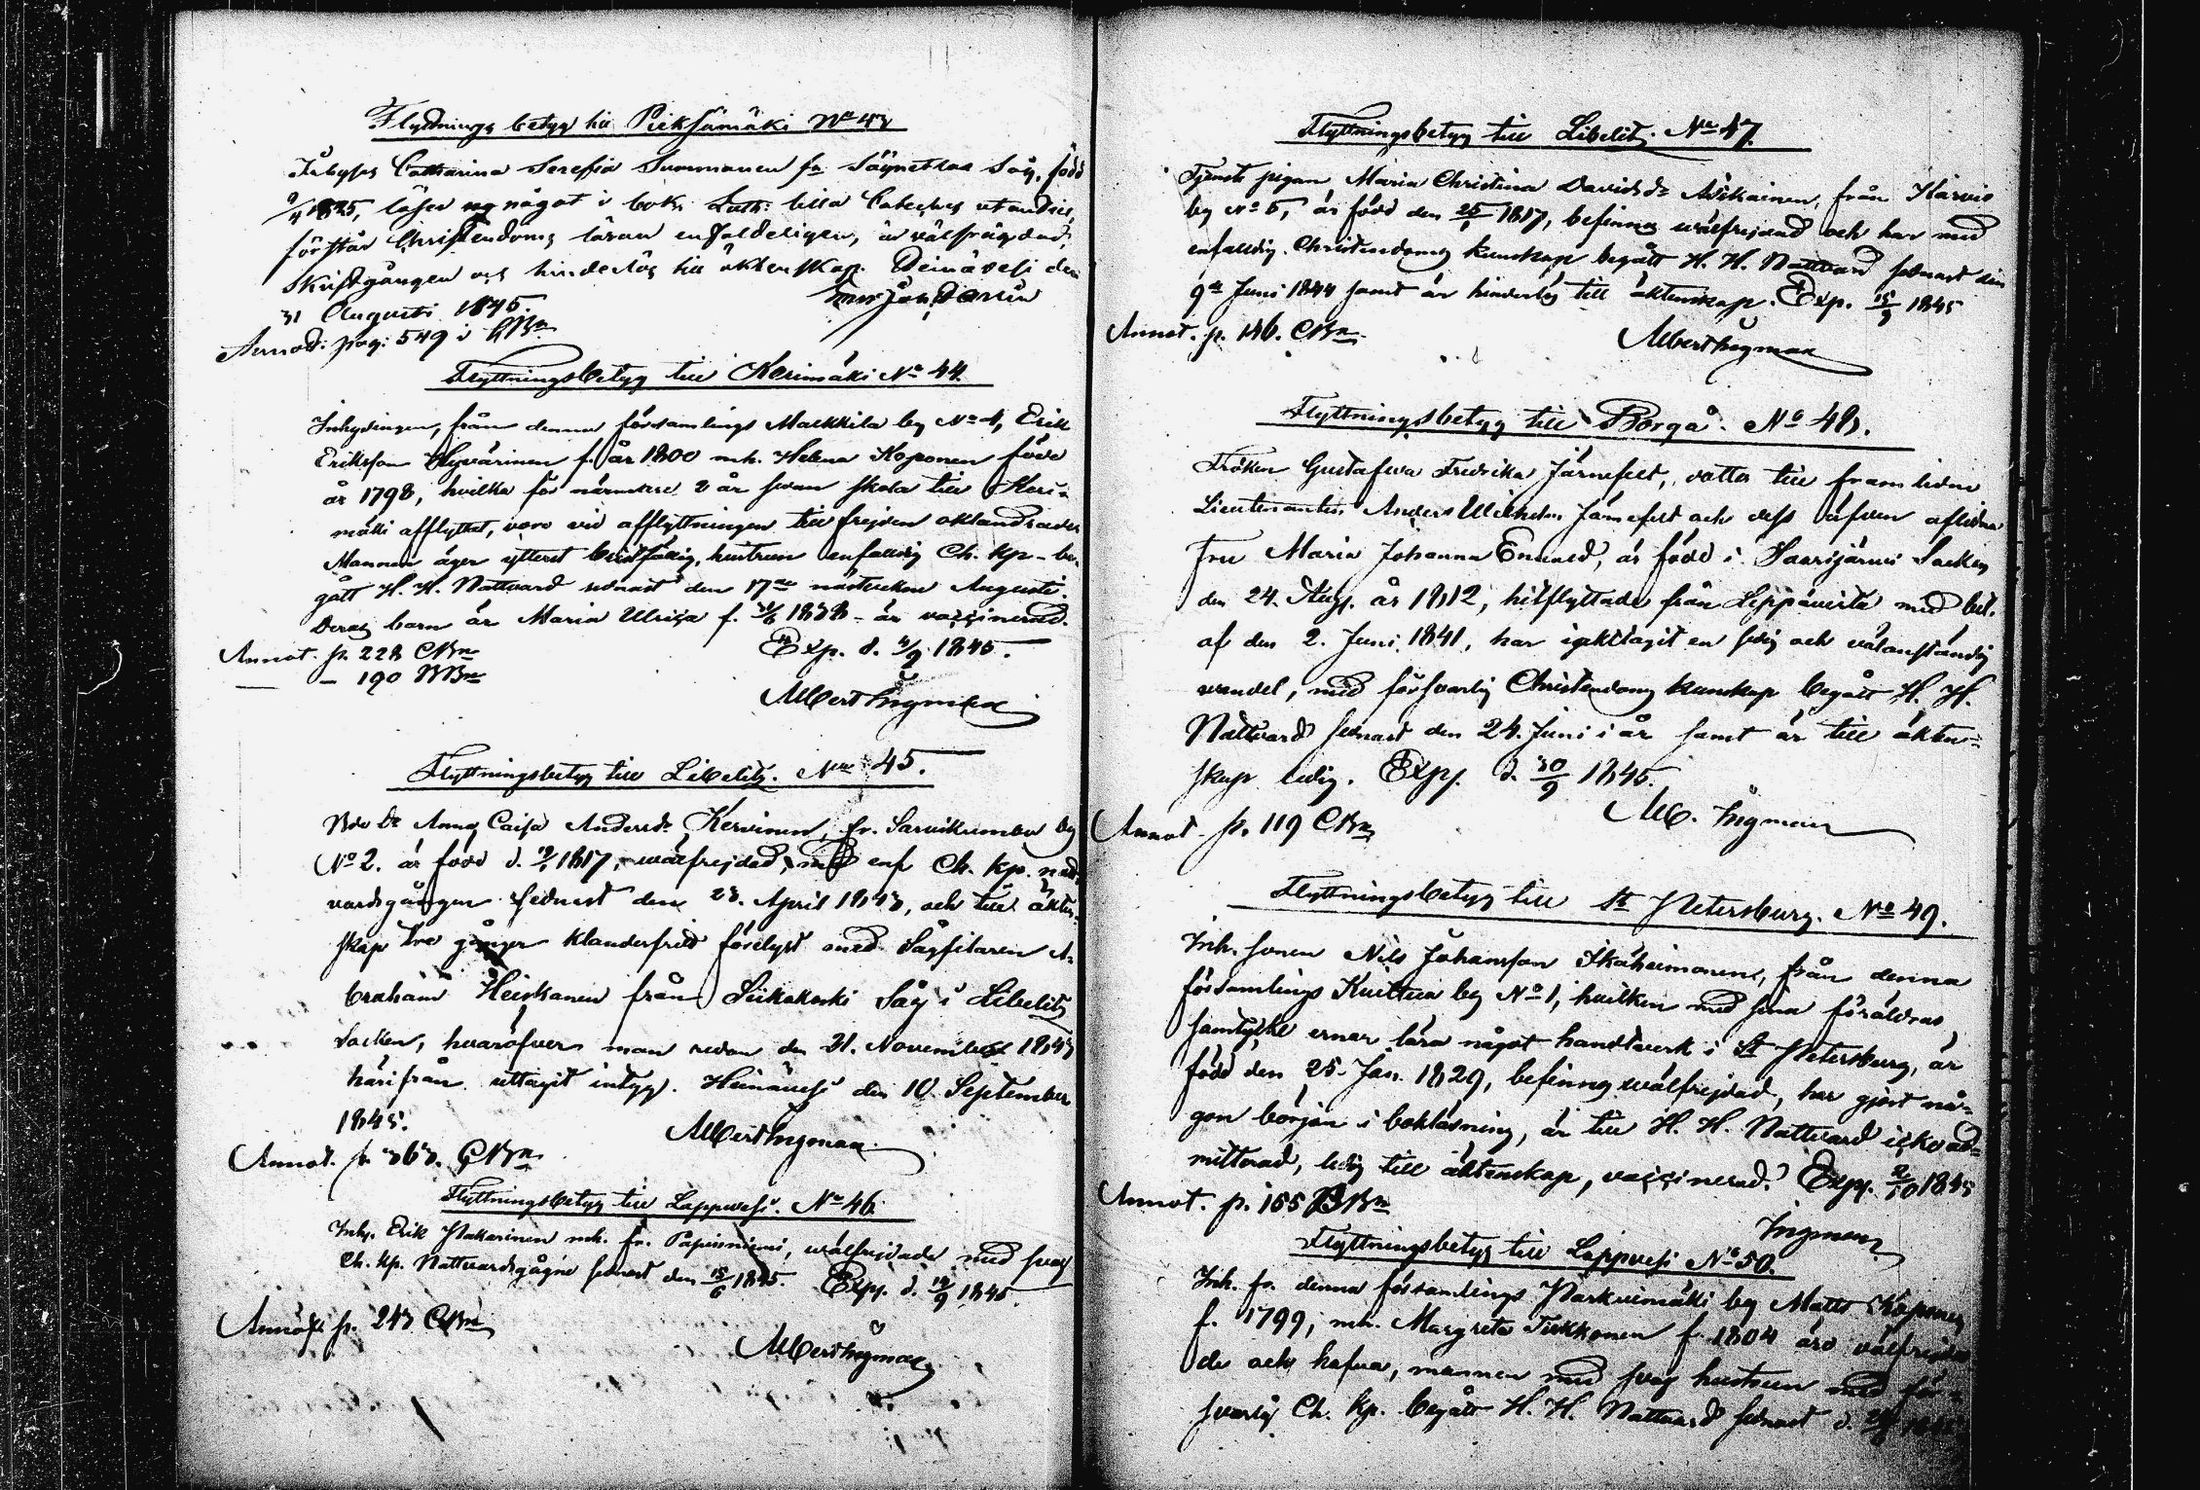 Flyttnings betyg till Pieksämäki No 43
Inhyses Catharina Serefia Summanen fr. Säynetkas Såg, född
1825, läser något i bok, Luth: lilla Cateches utandtill,
förstår Christendoms läran enfaldeligen, är välfrägdad,
Skriftgången och hinderlös till äktenskap. Heinävesi den
31 Augusti 1845.
Annot: pag: 549 i CBn
Flyttningsbetyg till Kerimäki No 44.
Inhysingen, från denna församlings Malkkila by No 4, Erik
Eriksson Hyvärinen f. år 1800 mh. Helena Koponen född
år 1798, hvilka för närmare 2 år sedan skola till Keri-
mäki afflyttat, voro vid afflyttningen till frejden oklandrade
Mannen äger ytterst bristfällig, hustrun enfaldig Ch. kp - be-
gått H. H. Nattvard sednast den 17de Augusti.
Deras barn är Maria Ulrica f. 1838 - är vaccinerad.
Annot. p. 228 CBn Exp. d. 4/9 1845.
— 190 BBn
Albert Ingman
Flyttningsbetyg till Libelitz. No 45.
Bde Dr Anna Caisa Andersdr Kervinen, fr. Sarvikumbu by
No 2. är född d. 1817, wälfrejdad, med enf Ch. kp. natt-
vardsgången sednast den 23. April 1843, och till äkten-
skap tre gånger klanderfritt förelyst med Sågfilaren A-
braham Heiskanen från Siikakoski Såg i Libelitz
Socken, hvaröfver man redan den 21. November 1843
härifrån uttagit intyg. Heinävesi den 10. September
1845.
Albert Ingman
Annot. p. 363. CBn
Flyttningsbetyg till Lappvesi. No 46.
Inhy. Erik Pakarinen mh. fr. Papinniemi, wälfrejdade med svag
Ch. kp. Nattvardsgågne sednast den 15/6 1845. Exp. d. 14/9 1845.
Annot. p. 243 CBn
Albert Ingman
Flyttningsbetyg till Libelitz. No 47.
Tjenste pigan, Maria Christina Davidsdr Asikainen, från Karvio
by No 5, är född den 1817, befinnes wälfrejdad och har med
enfaldig Christendoms kunskap begått H. H. Nattvard sednast den
9de Juni 1844 samt är hinderlös till äktenskap. Exp. 15/9 1845
Annot. p. 186. CBn
Albert Ingman
Flyttningsbetyg till Borgå. No 48.
Fröken Gustafwa Fredrika Järnefelt, dotter till framlidne
Lieutenanten Anders Wilhelm Järnefelt och dess äfven aflidna
Fru Maria Johanna Enewald, är född i Saarijärvi Socken
den 24. Aug. år 1812, hitflyttade från Leppävirta med bet.
af den 2. Juni 1841, har iakttagit en sedig och välanständig
vandel, med försvarlig Christendoms kunskap begått H. H.
Nattvard sednast den 24. Juni i år samt är till äkten-
skap ledig. Exp. d. 30/9 1845.
Alb. Ingman
Annot. p. 119 CBn
Flyttningsbetyg till St Petersburg. No 49.
Inh. sonen Nils Johansson Ikäheimonen, från denna
församlings Kuittua by No 1, hvilken med sina föräldras
samtycke ernar lära något handtverk i St Petersburg, är
född den 25. Jan. 1829, befinnes wälfrejdad, har gjort nå-
gon början i bokläsning, är till H. H. Nattvard icke ad-
mitterad, ledig till äktenskap, vaccinerad. Exp. 2/10 1845
Annot. p. 155 BBn
Ingman
Flyttningsbetyg till Lappvesi No 50.
Inh. fr. denna församlings Parkuimäki by Matts Koponen
f. 1799, mh. Margreta Tirkkonen f. 1804 äro välfrejda-
de och hafva, mannen med svag hustrun med för-
svarlig Ch. kp. begått H. H. Nattvard sednast d.